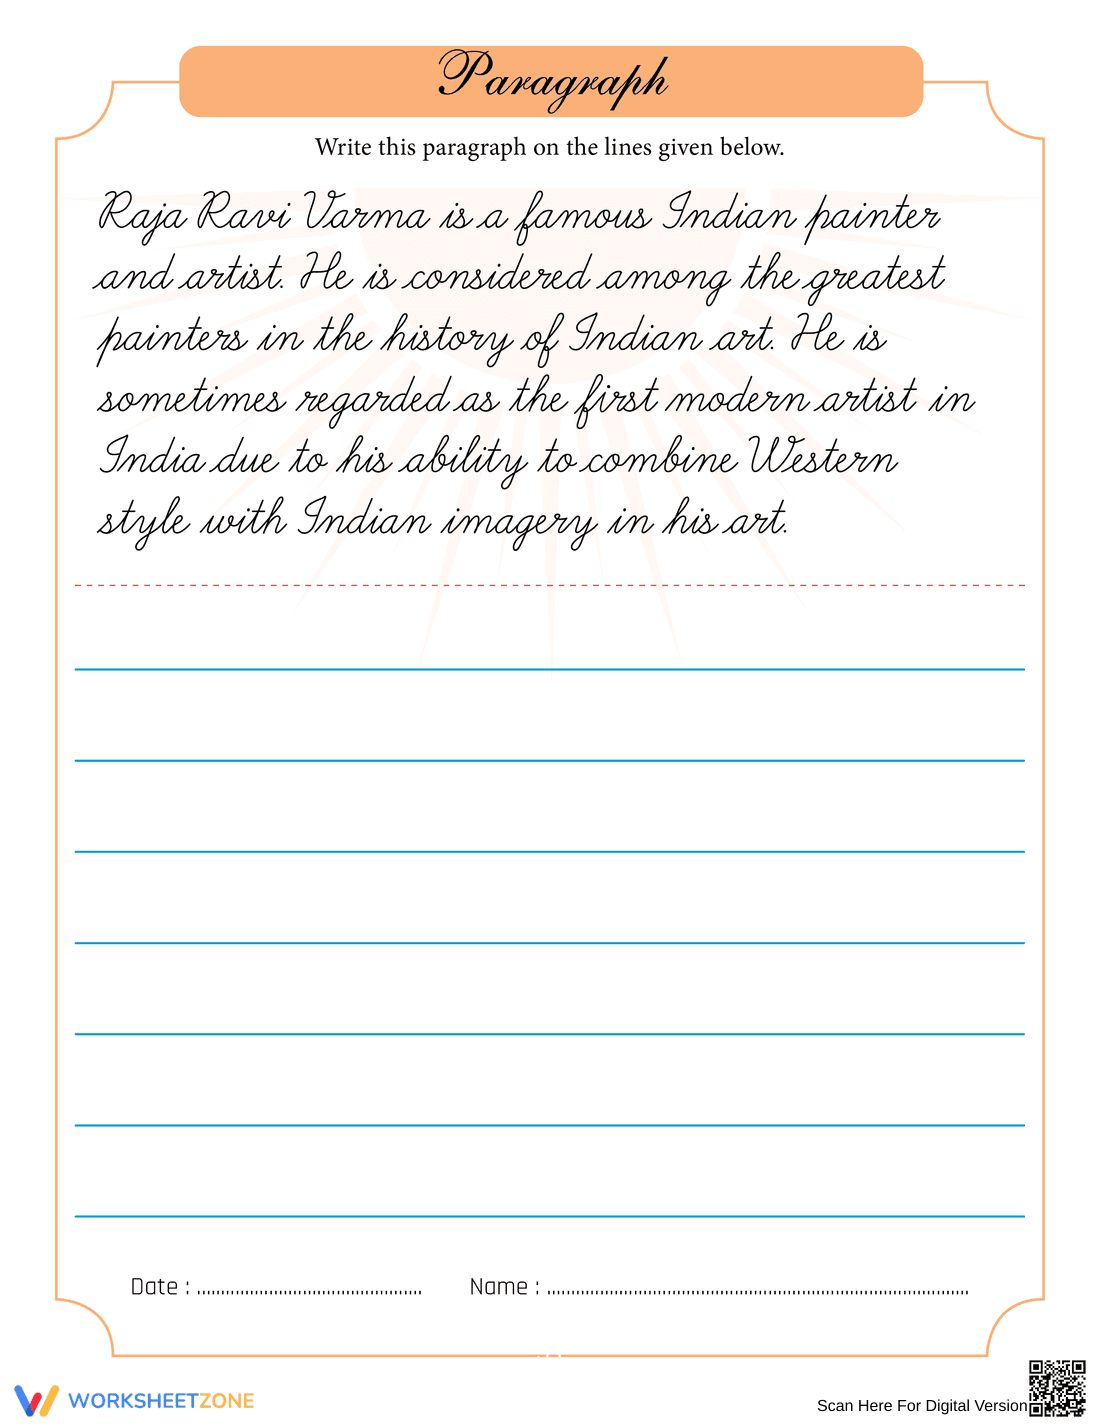 Paragraph
Write this paragraph on the lines given below.
Raja Ravi Varma is a famous Indian painter
and artist. He is considered among the greatest
painters in the history of Indian art. He is
sometimes regarded as the first modern artist in
India due to his ability to combine Western
style with Indian imagery in his art.
Date : ....................................................
Name : ....................................................................................................
WORKSHEETZONE
Scan Here For Digital Version